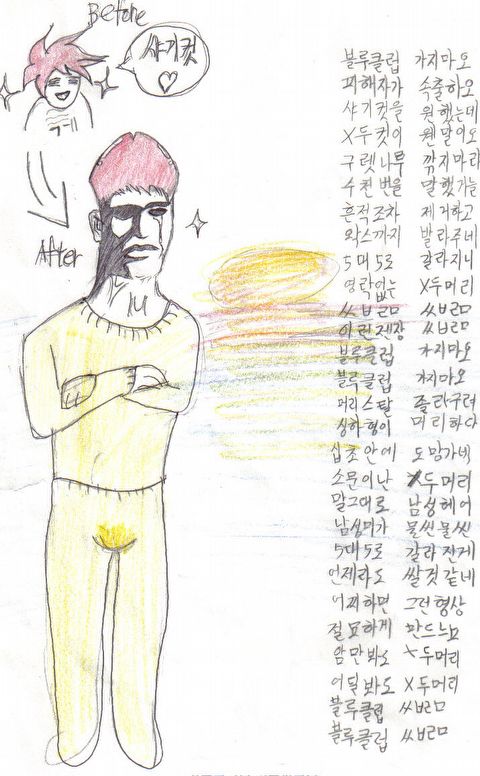 Before
샤기컷
After
블루클럽 가지마오
피해자가 속출하오
샤기컷을 원했는데
X두컷이 웬말이오
구렛나루 깎지마라
수천번을 말했거늘
흔적조차 제거하고
왁스까지 발라주네
5대5로 갈라지니
영락없는 X두머리
씨브르므 씨브르므
이런젠장 씨브르므
블루클럽 가지마오
블루클럽 가지마오
머리스탈 졸라구려
싱하형이 머리하다
십초안에 도망가네
소문이난 X두머리
말그대로 남성헤어
남성미가 물씬물씬
5대5로 갈라진게
언제라도 쌀것같네
어찌하면 그런형상
절묘하게 만드느뇨
암만봐도 X두머리
어딜봐도 X두머리
블루클럽 씨브르므
블루클럽 씨브르므